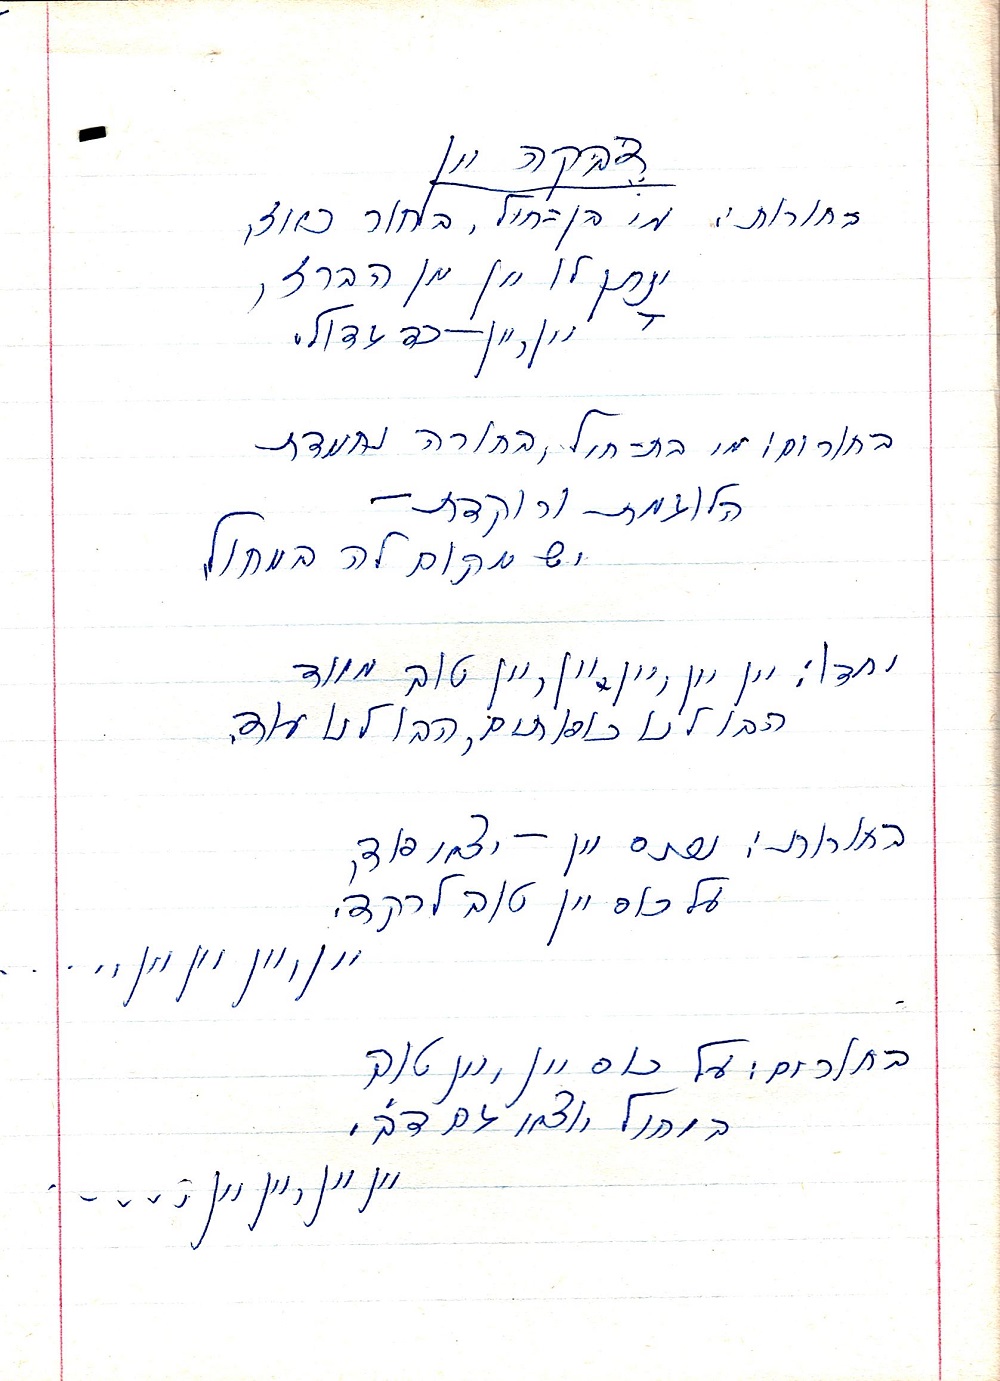 דבקה יין
בחורות: מי בן-חיל, בחור כארז,
ינתן לו יין מן הברז,
יין, יין – כד גדול.
בחורים: מי בת-חיל, בחורה נחמדת
הלוגמת ורוקדת –
יש מקום לה במחול,
יחדו: יין יין, יין, יין, יין טוב מאוד
הבו לנו כוסותים, הבו לנו עוד.
בחורות: נפתח יין – יצאו סוד,
על כוס יין טוב לרקד.
יין, יין יין יין,, . . .
בחורים: על כוס יין, יין טוב
במחול יוצאו גם דב.
יין יין, יין יין . . . .